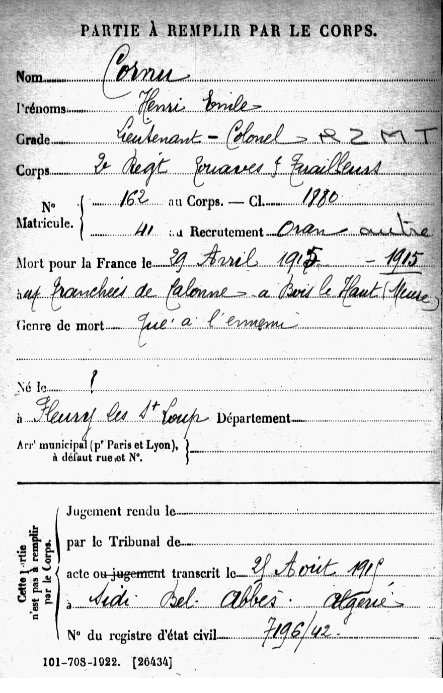 PARTIE À REMPLIR PAR LE CORPS.
Nom Cornu
Prénoms Henri Emile
Grade Lieutenant-Colonel R Z M T
Corps 2e Régt Zouaves & Tirailleurs
N° Matricule. 162 au Corps. — Cl. 1880
41 au Recrutement Oran autre
Mort pour la France le 29 Avril 1915 - 1915
à aux Tranchées de Calonne à Bois le Haut (Meuse)
Genre de mort tué à l'ennemi
Né le ?
à Fleury les St Loup Département
Arrt municipal (pr Paris et Lyon), à défaut rue et N°.
Cette partie n'est pas à remplir par le Corps.
Jugement rendu le
par le Tribunal de
acte ou jugement transcrit le 25 Août 1915
à Sidi Bel Abbès Algérie
N° du registre d'état civil 7196/42.
101-708-1922. [26434]